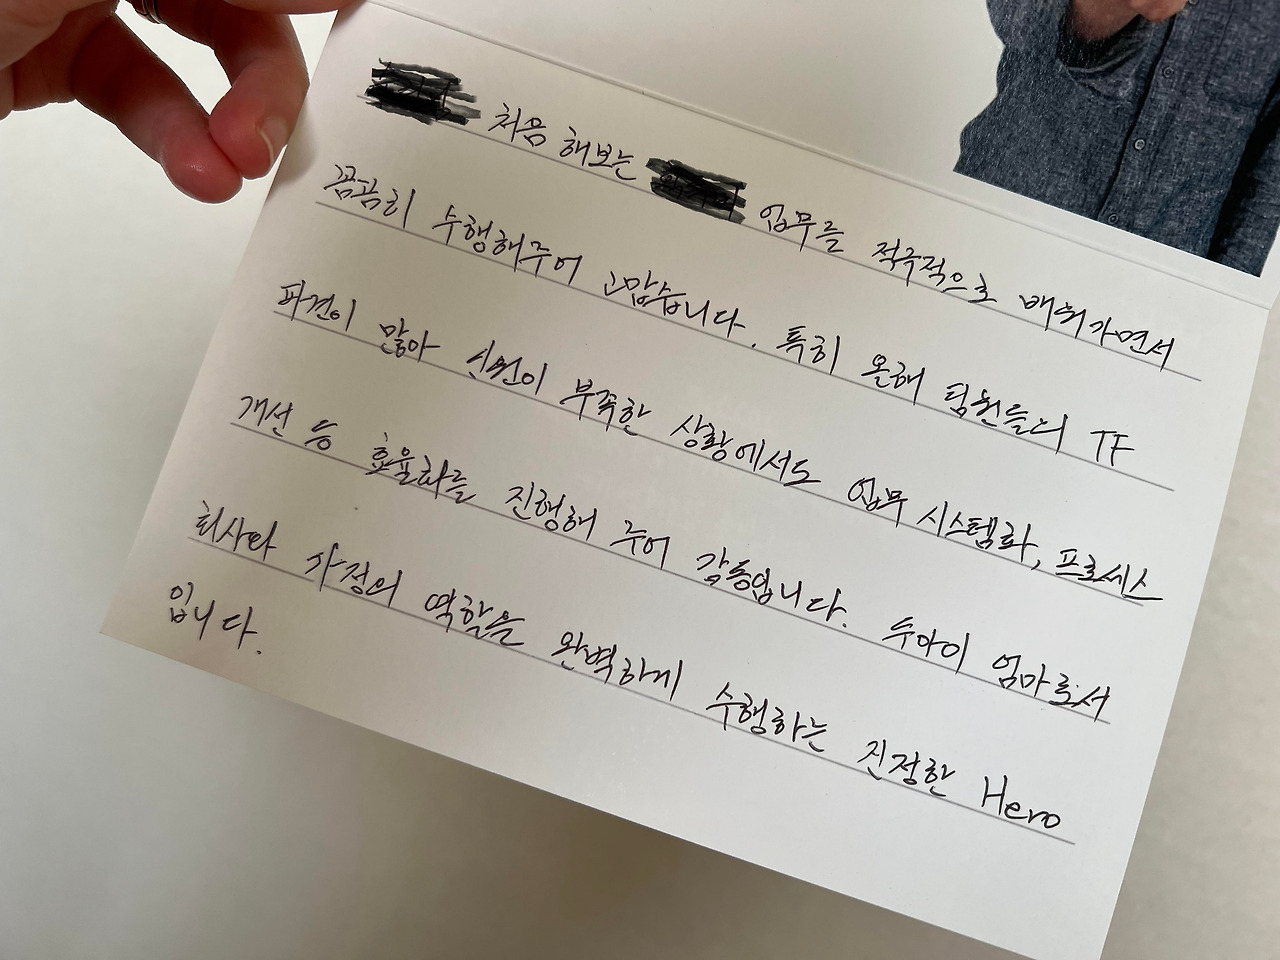 처음 해보는 업무를 적극적으로 배워가면서
꼼꼼히 수행해주어 고맙습니다. 특히 올해 팀원들의 TF
파견이 많아 인원이 부족한 상황에서도 업무 시스템화, 프로세스
개선 등 효율화를 진행해 주어 감동입니다. 두아이 엄마로서
회사와 가정의 역할을 완벽하게 수행하는 진정한 Hero
입니다.